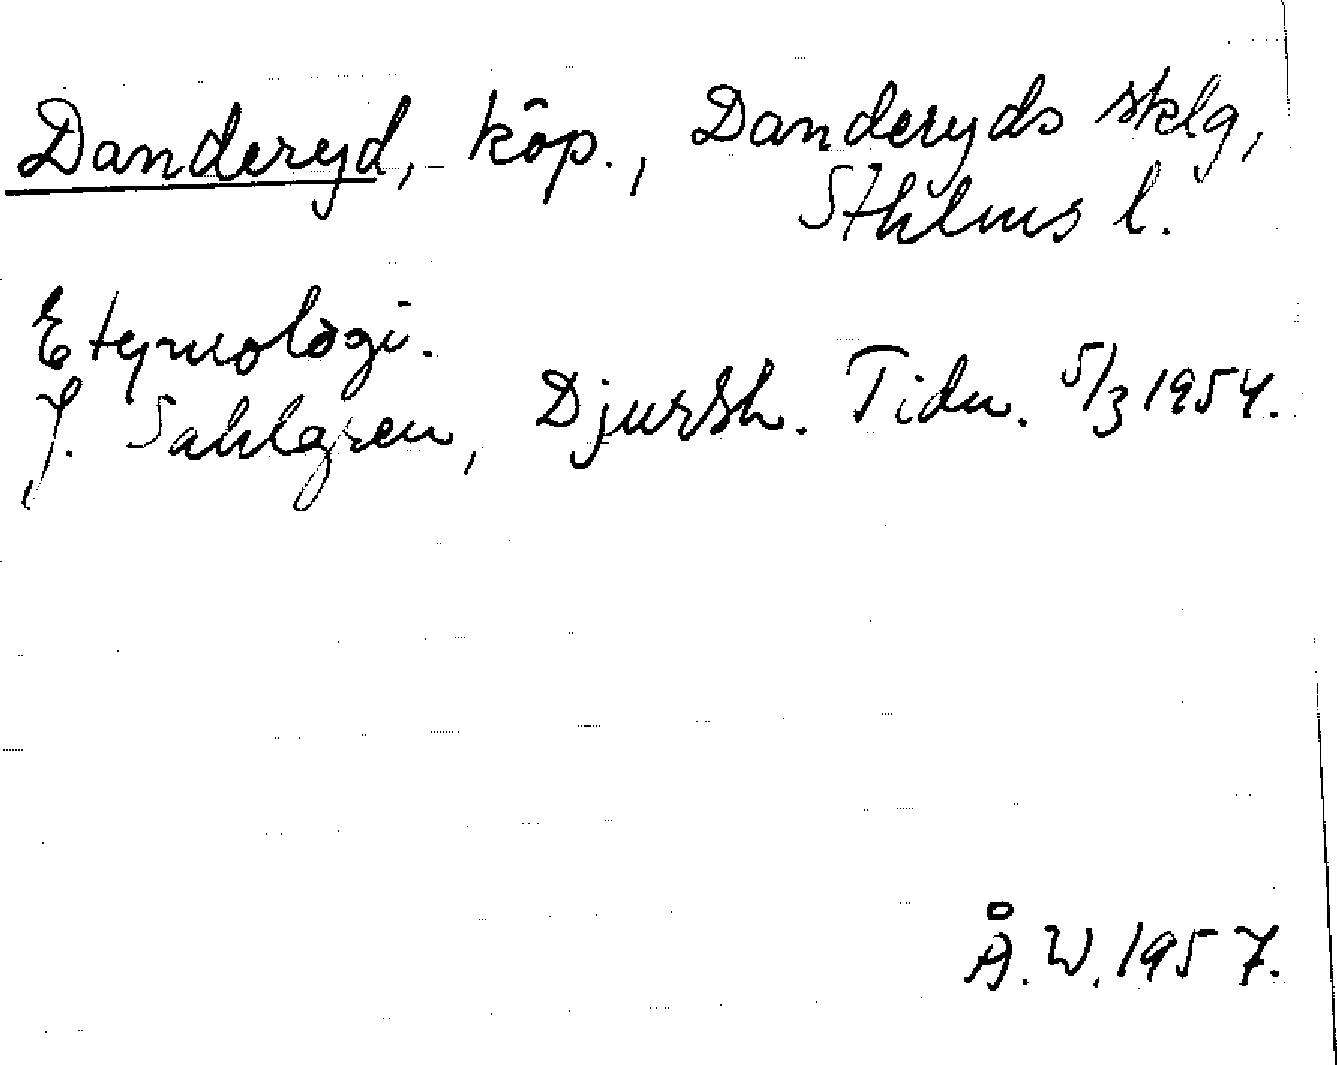 Danderyd, köp., Danderyds sklg,
Sthlms l.
Etymologi.
J. Sahlgren, Djursh. Tidn. 5/3 1954.
Å. W. 1957.